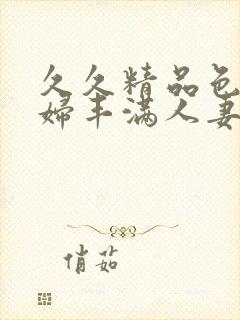 久久精品色
婦丰满人妻
俏茹